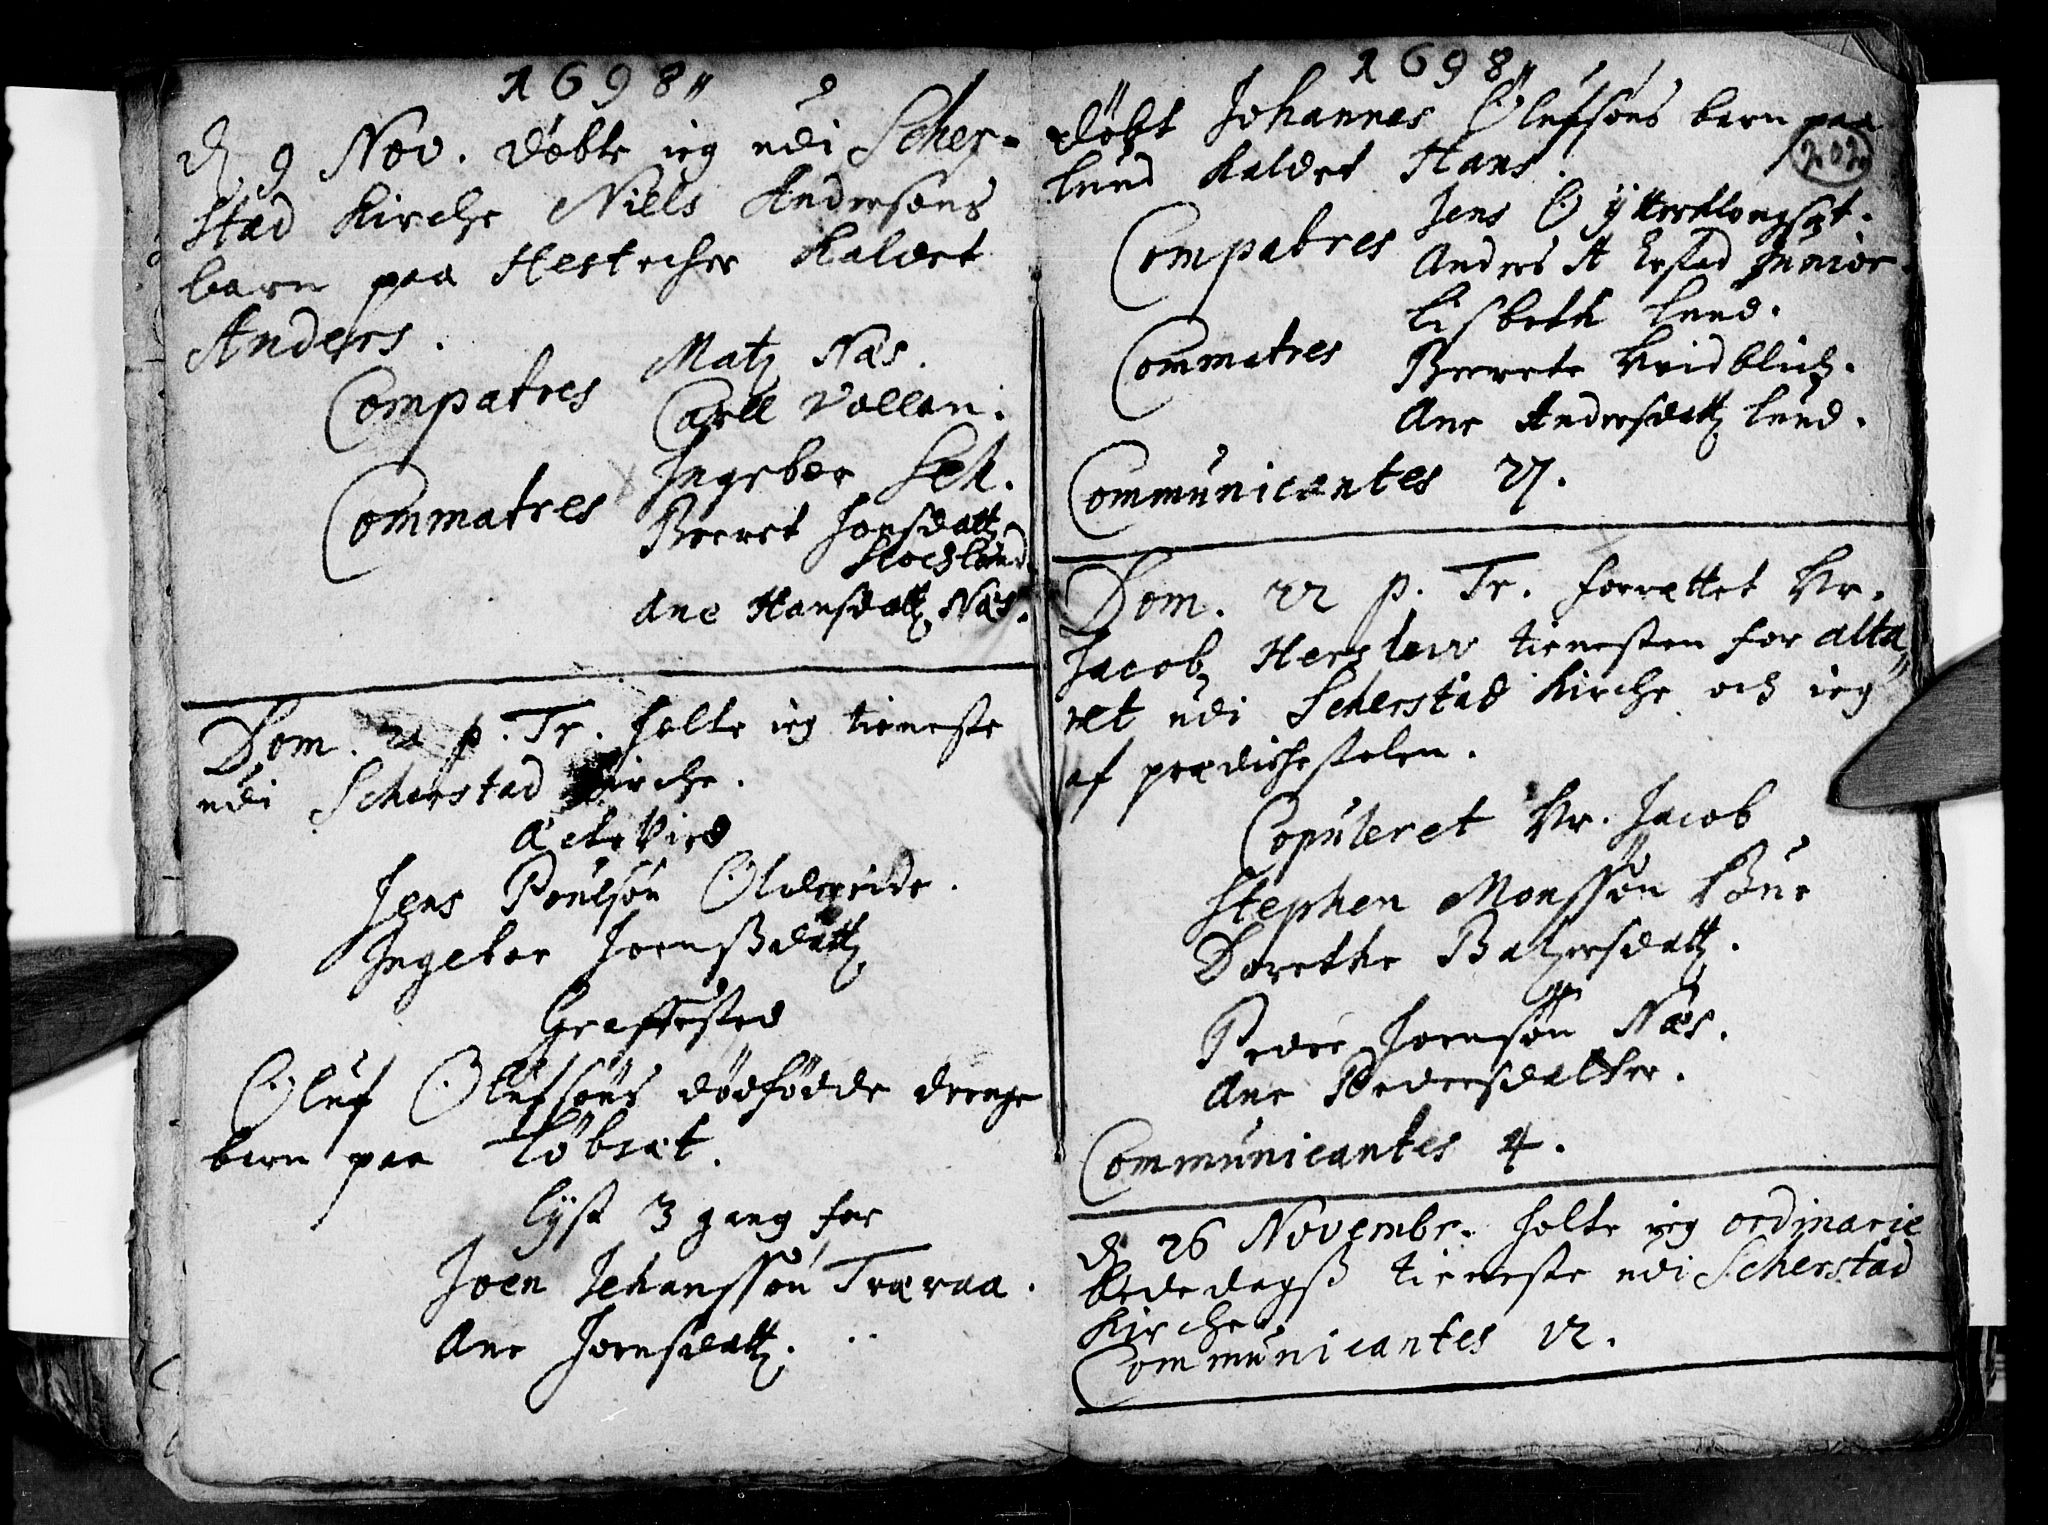 1698„
d. 9 Nov. døbte ieg udi Scher-
stad Kirche Niels Andersøns
barn paa Hestecher Kaldet
Anders.
Compatres Matz Næs.
Carll Vollan.
Commatres Ingebor Sch.
Beeret Jonsdatt
Ane Hansdatt Næs.
Dom. 21 p. Tr. holte ieg tieneste
udi Scherstad Kirche.
Ectevied
Jens Poulsøn Oldereide.
Ingebor Joensdatt
Graffested
Oluf Olufsøns dødfødde drenge
barn paa Løbsæt.
lyst 3 gang for
Joen Johanssøn Træraa.
Ane Joensdatt.
1698„
202
døbt Johannes Olufsøns barn paa
lund Kaldet Hans.
Compatres Jens O Ytterklongset.
Anders A Erstad Junior.
Commatres Lisbeth lund.
Beerete Hvidblich.
Ane Andersdatt lund.
Communicantes 27.
Dom. 22 p. Tr. forrettet Hr.
Jacob Herslew tienesten for alta„
ret udi Scherstad Kirche och ieg
af prædichestolen.
Copuleret Hr. Jacob
Stephen Monssøn Bue
Dorethe Baltzersdatt.
Peder Joensøn Næs.
Ane Pedersdatter.
Communicantes 4.
d. 26 Novembr. holte ieg ordinarie
bededagß tieneste udi Scherstad
Kirche.
Communicantes 12.